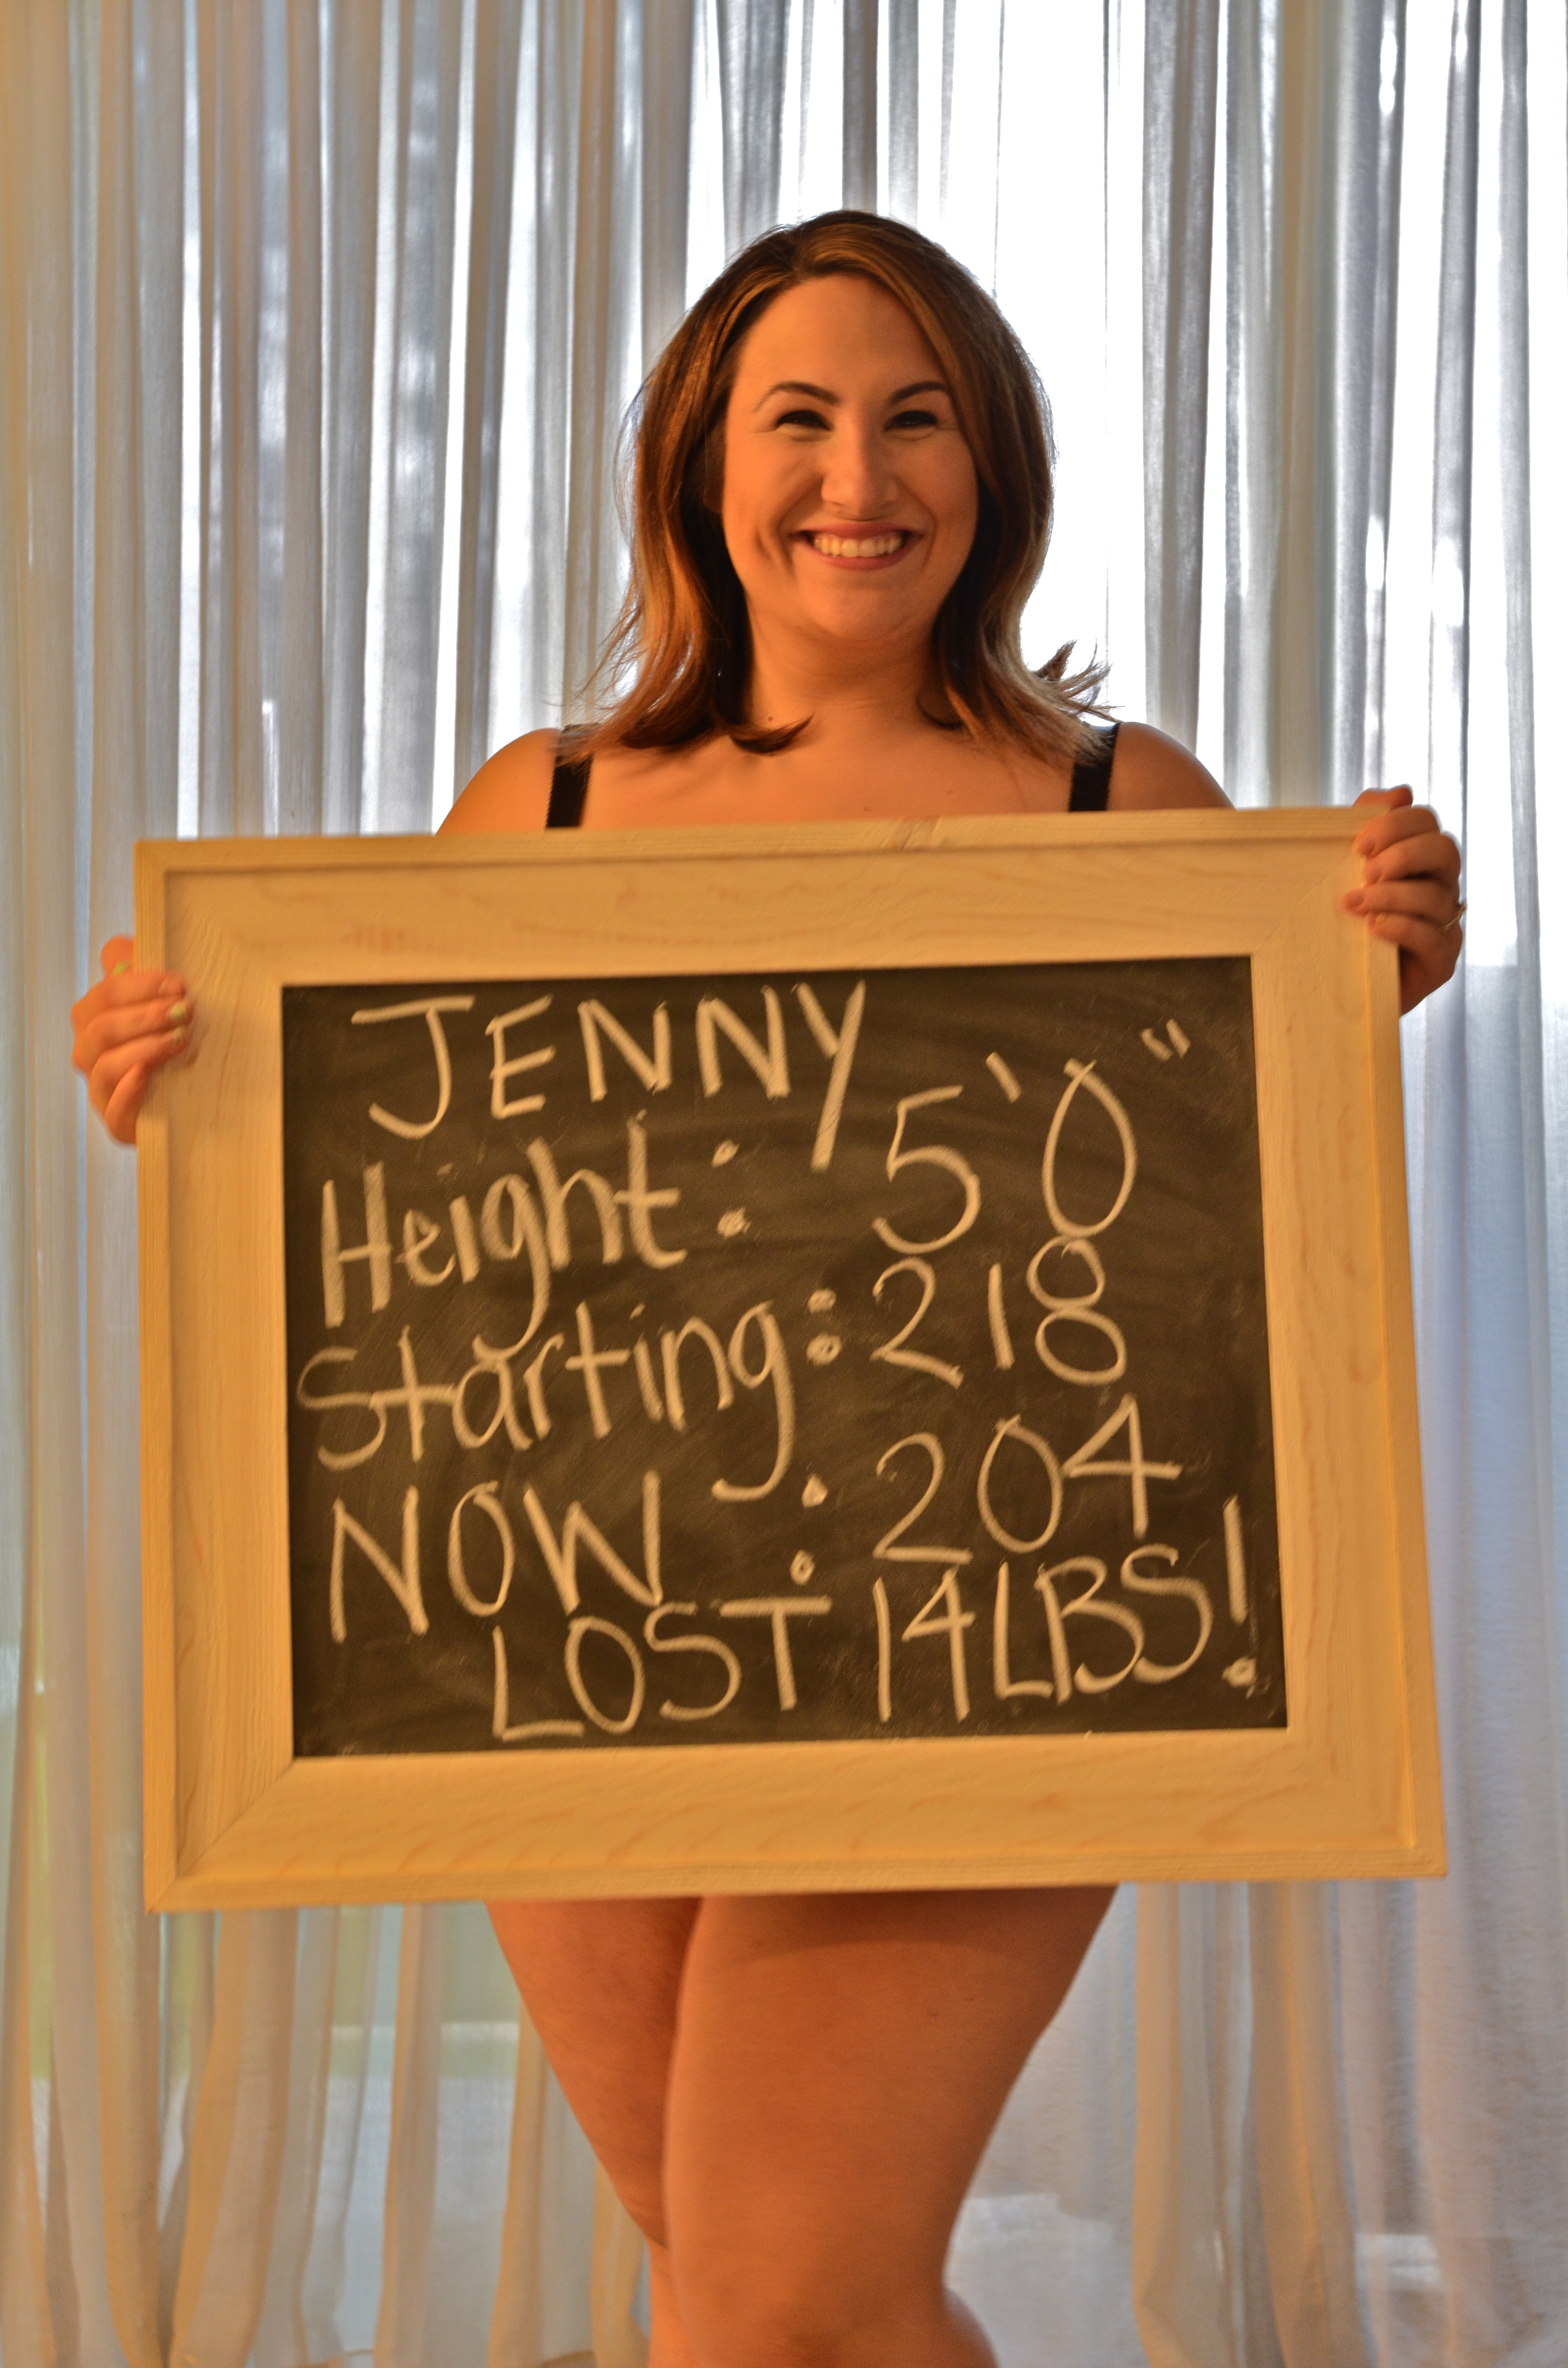 JENNY
Height: 5'0"
Starting: 218
NOW: 204
LOST 14LBS!